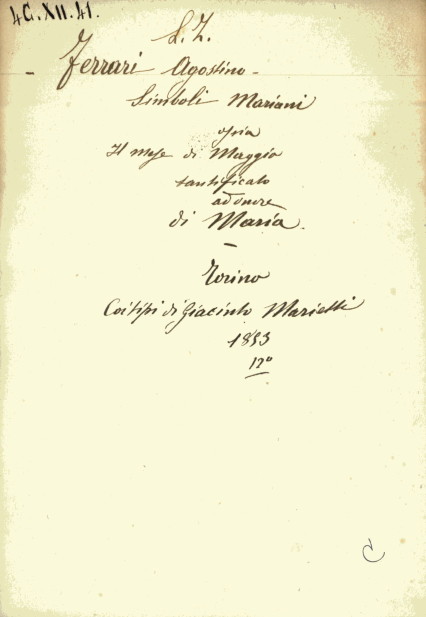 4G.XII.41.
S. Z.
Ferrari Agostino -
Simboli Mariani
ossia
Il mese di Maggio
santificato
ad onore
di Maria.
Torino
Coi tipi di Giacinto Marietti
1853
12º
C